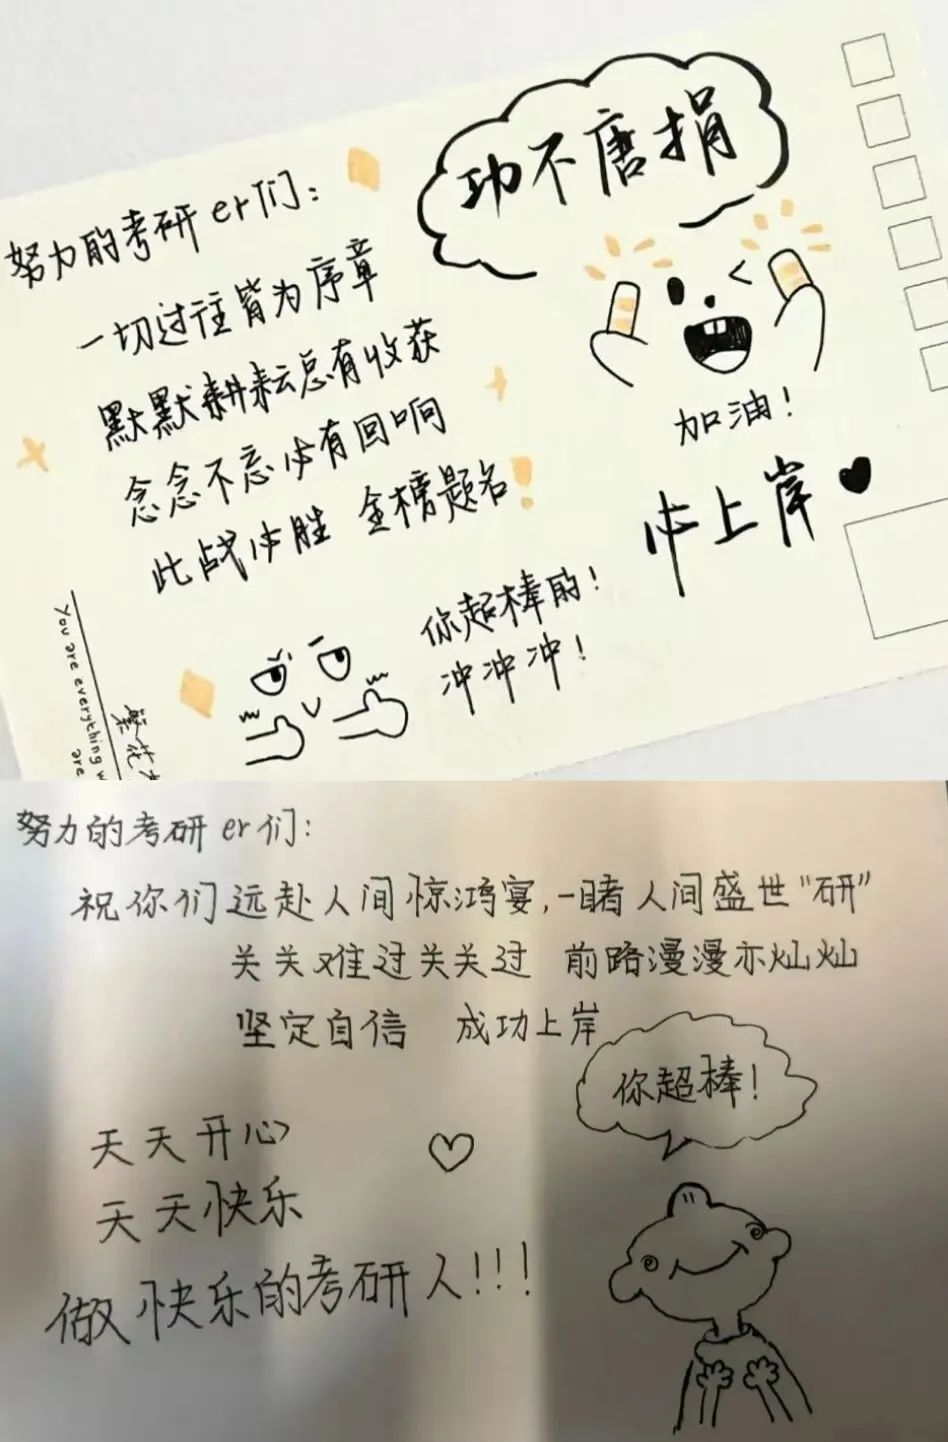 功不唐捐
努力的考研er们：
一切过往皆为序章
默默耕耘总有收获
念念不忘必有回响
此战必胜 金榜题名！
加油！
必上岸
你超棒的！
冲冲冲！
You are everything
are
努力的考研er们：
祝你们远赴人间惊鸿宴，一睹人间盛世“研”
关关难过关关过 前路漫漫亦灿灿
坚定自信 成功上岸
你超棒！
天天开心
天天快乐
做快乐的考研人！！！